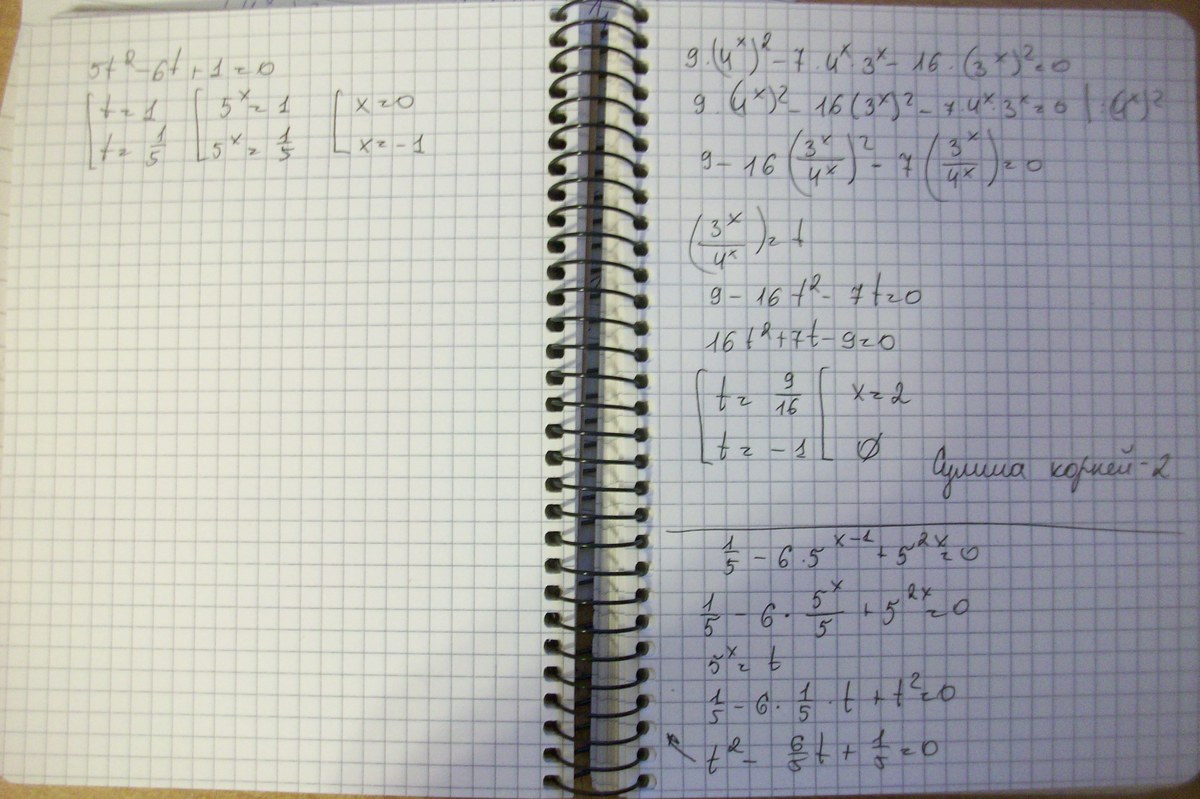 5t² - 6t + 1 = 0
[ t = 1 [ 5ˣ = 1 [ x = 0
[ t = 1/5 [ 5ˣ = 1/5 [ x = -1
9·(4ˣ)² - 7·4ˣ·3ˣ - 16·(3ˣ)² = 0
9·(4ˣ)² - 16(3ˣ)² - 7·4ˣ·3ˣ = 0 | : (4ˣ)²
9 - 16(3ˣ/4ˣ)² - 7(3ˣ/4ˣ) = 0
(3ˣ/4ˣ) = t
9 - 16t² - 7t = 0
16t² + 7t - 9 = 0
[ t = 9/16 [ x = 2
[ t = -1 [ ∅
Сумма корней - 2
1/5 - 6·5ˣ⁻¹ + 5²ˣ = 0
1/5 - 6·5ˣ/5 + 5²ˣ = 0
5ˣ = t
1/5 - 6·1/5·t + t² = 0
t² - 6/5t + 1/5 = 0